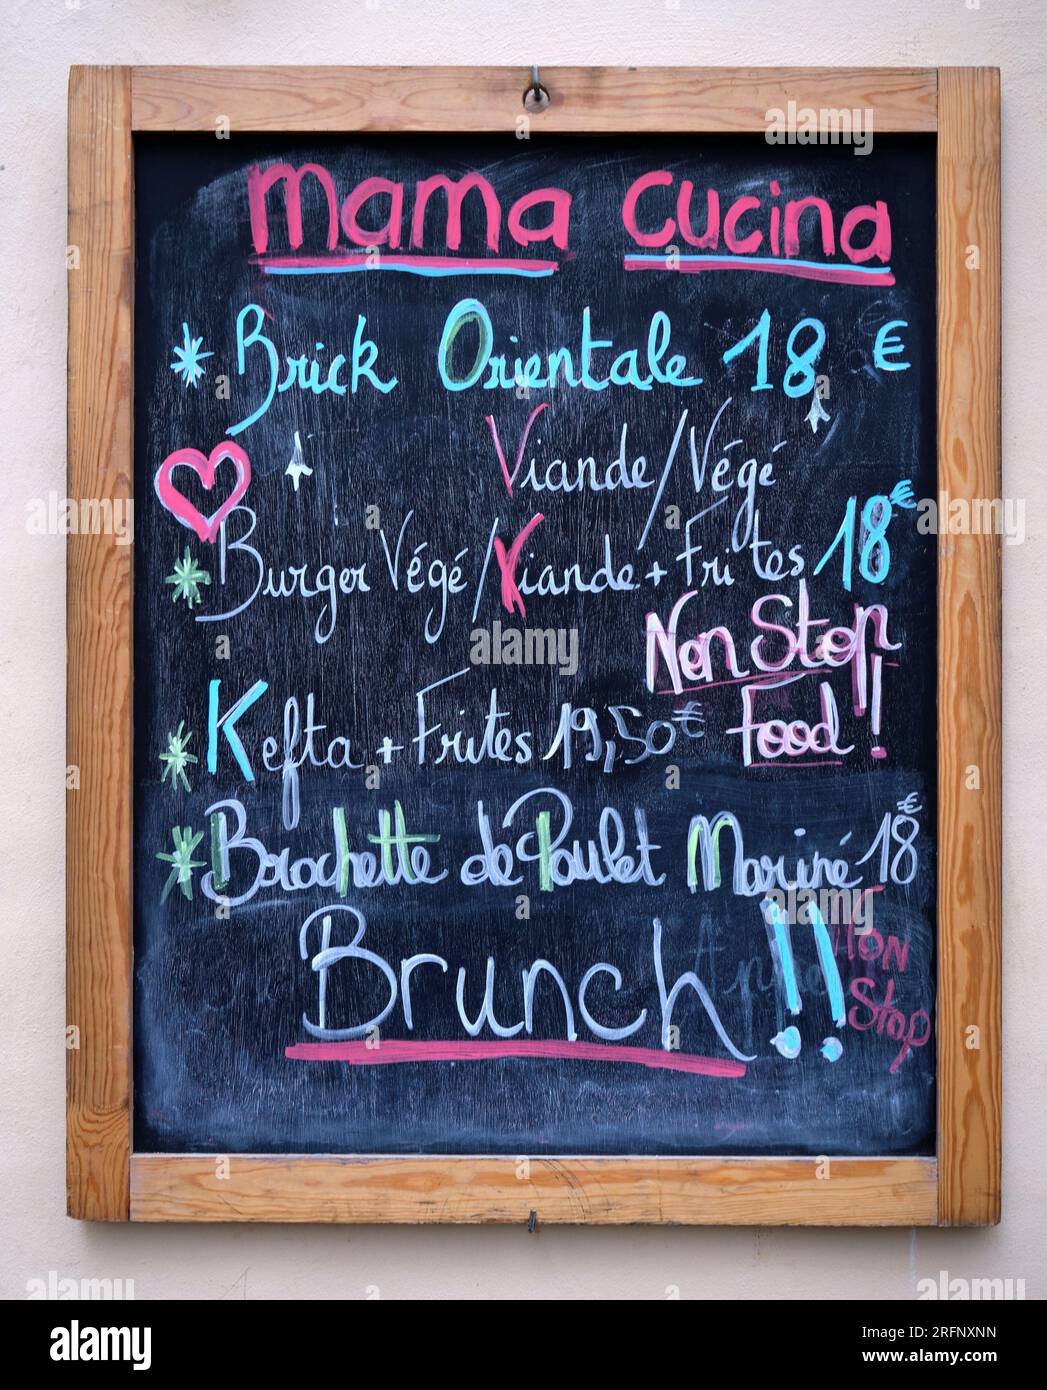 mama cucina
* Brick Orientale 18 €
Viande/Végé
* Burger Végé/Viande + Frites 18€
Non Stop
Food !
* Kefta + Frites 19,50€
* Brochette de Poulet Mariné 18€
Brunch !!
Non
Stop
alamy
Image ID: 2RFNXNN
www.alamy.com